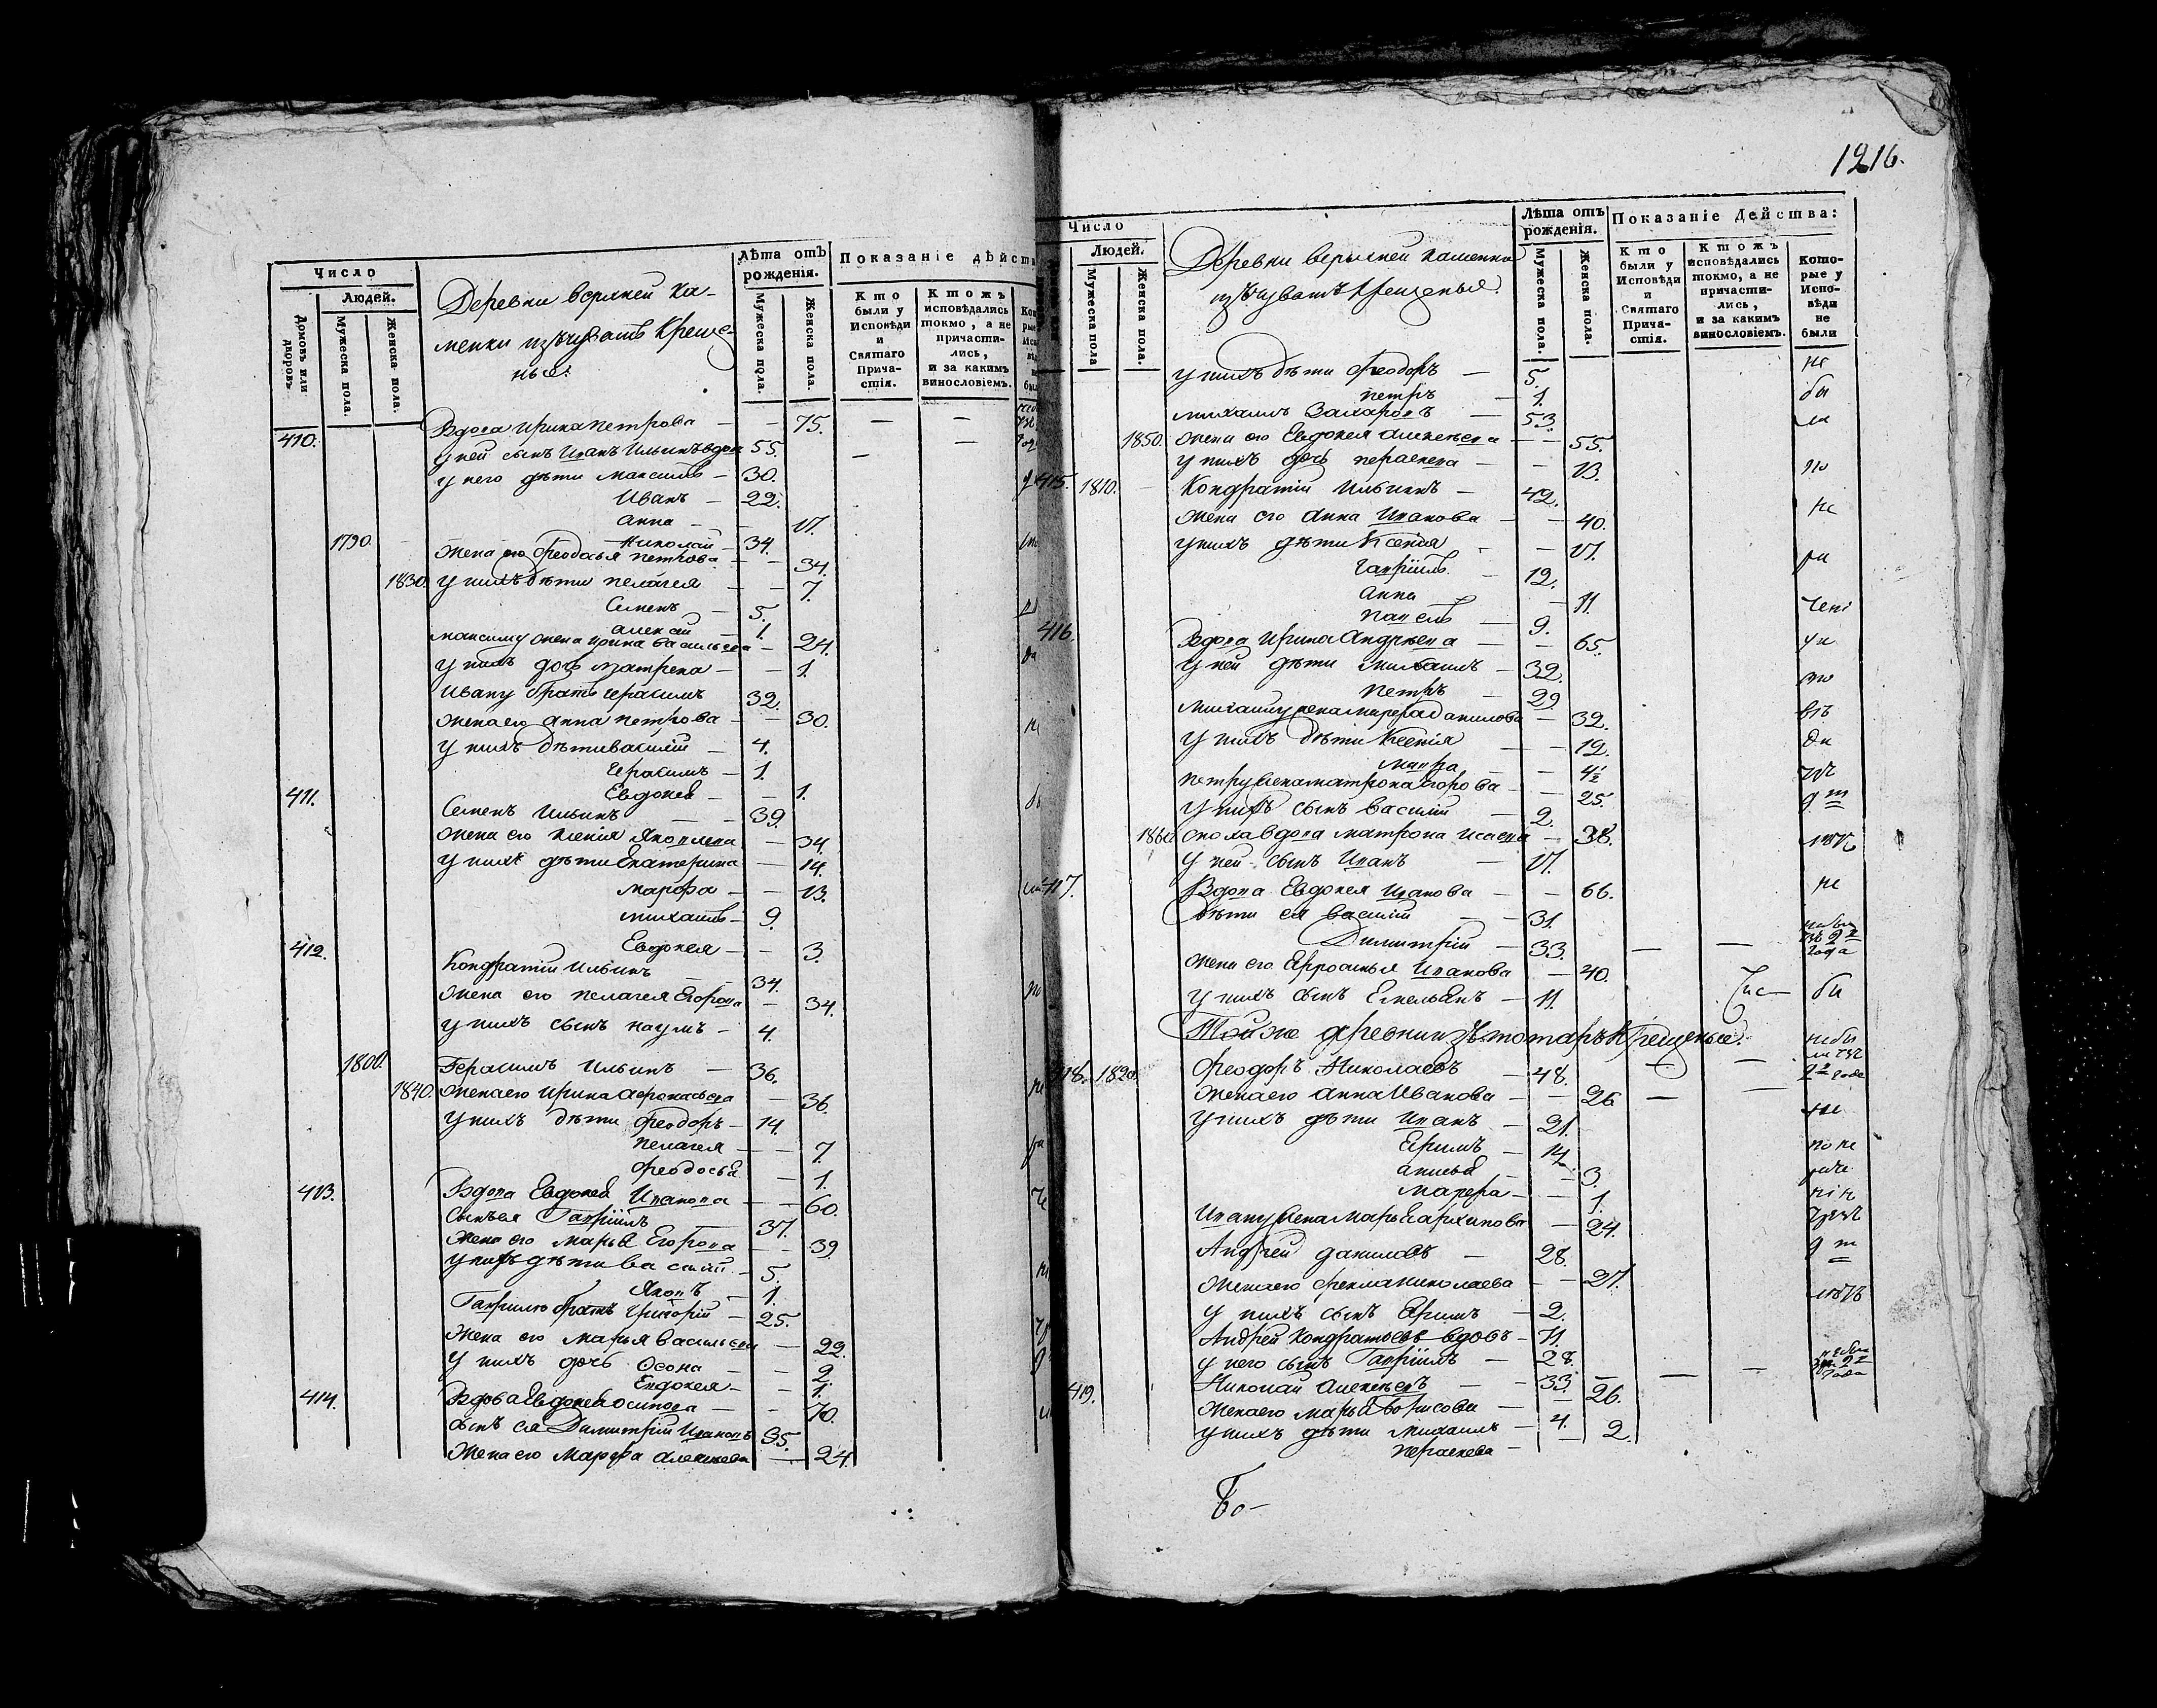 Число
Людей.
Домовъ или дворовъ
Мужеска пола.
Женска пола.
Деревни верхней Ка-
менки изъ чувашъ Креще-
ные.
Лѣта отъ рожденія.
Мужеска пола.
Женска пола.
Показаніе дѣйст
Кто были у Исповѣди и Святаго Прича-стія.
Ктожъ исповѣдались токмо, а не причасти-лись, и за какимъ винословіемъ.
Вдова Ирина Петрова — — 75. — —
410. У ней сынъ Иванъ Ильинъ вдовъ 55. — —
У него дѣти Максимъ — 30.
Иванъ — 22.
Анна — — 17.
1790. Николай — 34.
Жена его Феодосья Петрова — — 34.
1830. У нихъ дѣти Пелагея — — 7.
Семенъ — 5.
Алексѣй — 1.
Максиму жена Ирина Васильева — 24.
У нихъ дочь Матрена — — 1.
Ивану братъ Герасимъ 32.
Жена его Анна Петрова — — 30.
У нихъ дѣти Василій — 4.
Герасимъ — 1.
Евдокея — — 1.
411. Семенъ Ильинъ — — 39.
Жена его Ксенія Яковлева — 34.
У нихъ дѣти Екатерина — 14.
Марфа — — 13.
Михаилъ — 9.
Евдокея — — 3.
412. Кондратій Ильинъ — 34.
Жена его Пелагея Егорова — 34.
У нихъ сынъ Наумъ — 4.
1800. Герасимъ Ильинъ — 36.
1840. Жена его Ирина Афонасьева — 36.
У нихъ дѣти Феодоръ — 14.
Пелагея — — 7.
Феодосья — 1.
413. Вдова Евдокея Иванова — — 60.
Сынъ ея Гавріилъ — 37.
Жена его Марья Егорова — — 39
У нихъ дѣти Василій — 5.
Яковъ — 1.
Гаврилѣ братъ Григорій — 25.
Жена его Марья Васильева — 22.
У нихъ дочь — — 2.
Евдокея — — 1.
414. Вдова Евдокея Осипова — — 70.
Сынъ ея Димитрій Ивановъ 35.
Жена его Марфа Алексѣева — 24.
1216.
Число
Людей.
Мужеска пола
Женска пола.
Деревни верхней Каменки
изъ чувашъ Крещеные.
Лѣта отъ рожденія.
Мужеска пола.
Женска пола.
Показаніе Действа:
Кто были у Исповѣди и Святаго Прича-стія.
Ктожъ исповѣдались токмо, а не причасти-лись, и за какимъ винословіемъ.
Кото-рые у Испо-вѣди не были
У нихъ дѣти Феодоръ — 5. не
Петръ — 1. бы
Михаилъ Захаровъ — 53. ли
1850. Жена его Евдокея Алексѣева — — 55.
У нихъ дочь Параскева — — 13.
415. 1810. Кондратій Ильинъ — 42. по
Жена его Анна Иванова — — 40. не
У нихъ дѣти Ксенія — — 17.
Гавріилъ — 12. ра
Анна — 11.
Павелъ — 9. чені
416. Вдова Ирина Андреева — — 65.
У ней дѣти Михаилъ — 32.
Петръ — 29
Михаилу жена Марфа Данилова — 32.
У нихъ дѣти Ксенія — — 12.
Мавра — — 4½
Петру жена Матрона Егорова — 25.
У нихъ сынъ Василій — 2.
1860. Сноха вдова Матрона Исаева — 38.
У ней сынъ Иванъ — 17.
417. Вдова Евдокея Иванова — — 66. не
Дѣти ея Василій — — 31.
Димитрій — 33. — — года
Жена его Афросинья Иванова — 40.
У нихъ сынъ Емельянъ — 11.
Той же деревни изъ тотаръ Крещеные.
418. 1820. Феодоръ Николаевъ — 48. — —
Жена его Анна Иванова — — 26 — —
У нихъ дѣти Иванъ — 21.
Ефимъ — 14.
Анисья — — 3.
Марфа — — 1.
Ивану жена Марья Архипова — 24.
Андрей Даниловъ — 28.
Жена его Фекла Николаева — — 27.
У нихъ сынъ Ефимъ — 2.
Андрей Кондратьевъ вдовъ — 71.
У него сынъ Гавріилъ — 28.
419. Николай Алексѣевъ — — 33. — — — года
Жена его Марья Борисова — — 26.
У нихъ дѣти Михаилъ — 4.
Параскева — — 2.